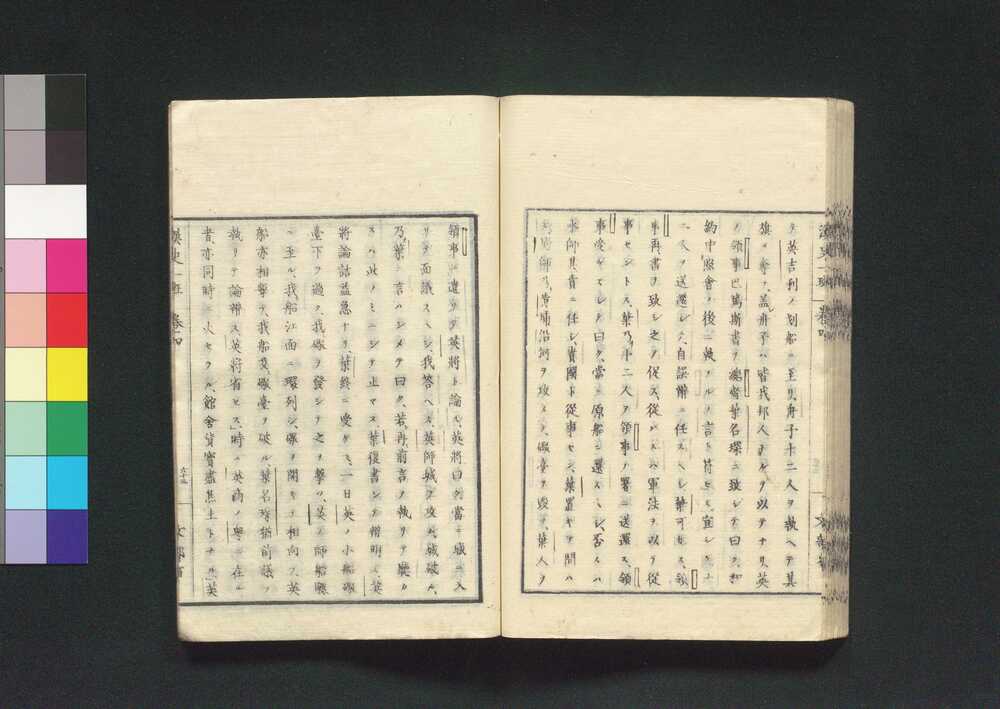 タ英吉利ノ划船ニ至リ、舟子十二人ヲ執ヘテ其
旗ヲ奪フ、蓋舟子ハ皆我邦人ナルヲ以テナリ、英
ノ領事巴馬斯書ヲ總督葉名琛ニ致シテ曰ク、和
約中照會ノ後ニ執フルノ言アリ、宜シク十
二人ヲ送還シテ、自誤
再書ヲ致シ之ヲ促ス、從ハスハ軍法ヲ以テ從
事セントス、葉乃十二人ヲ領事ノ署ニ送還ス、領
事受ケスシテ曰ク、當ニ原船ニ還スヘシ、否スハ
水師其責ニ任シ、貴國ト從事セン、葉置キテ問ハ
沿河ヲ攻メテ、礮臺ヲ毀ツ、葉人ヲ
漢史一班 卷四
文部省
領事ニ遣リテ英將ト論ス、英將曰ク當ニ城ニ入
リテ面議スヘシ、我答ヘス、英師城ヲ攻ム、城破ル、
乃葉ニ言ハシメテ曰ク、若再前言ヲ執リテ
スハ此ノミニシテ止マス、葉復書シテ情明ス、英
將論詰益急ナリ、葉終ニ受ケス、一日英ノ小船礮
臺下ヲ過ク、我礮ヲ發シテ之ヲ擊ツ、英ノ師船
ニ至ル、我船江面ニ環列シ、礮ヲ開キテ相向フ、英
船亦相擊テ、我船及礮臺ヲ破ル、葉名琛猶前議ヲ
執リテ論辨ス、英將省セス、時ニ英商ノ粤ニ在ル
者、亦同時ニ火セラル、館舍貨寶盡焦土トナル、英
漢史一班 卷四
文部省